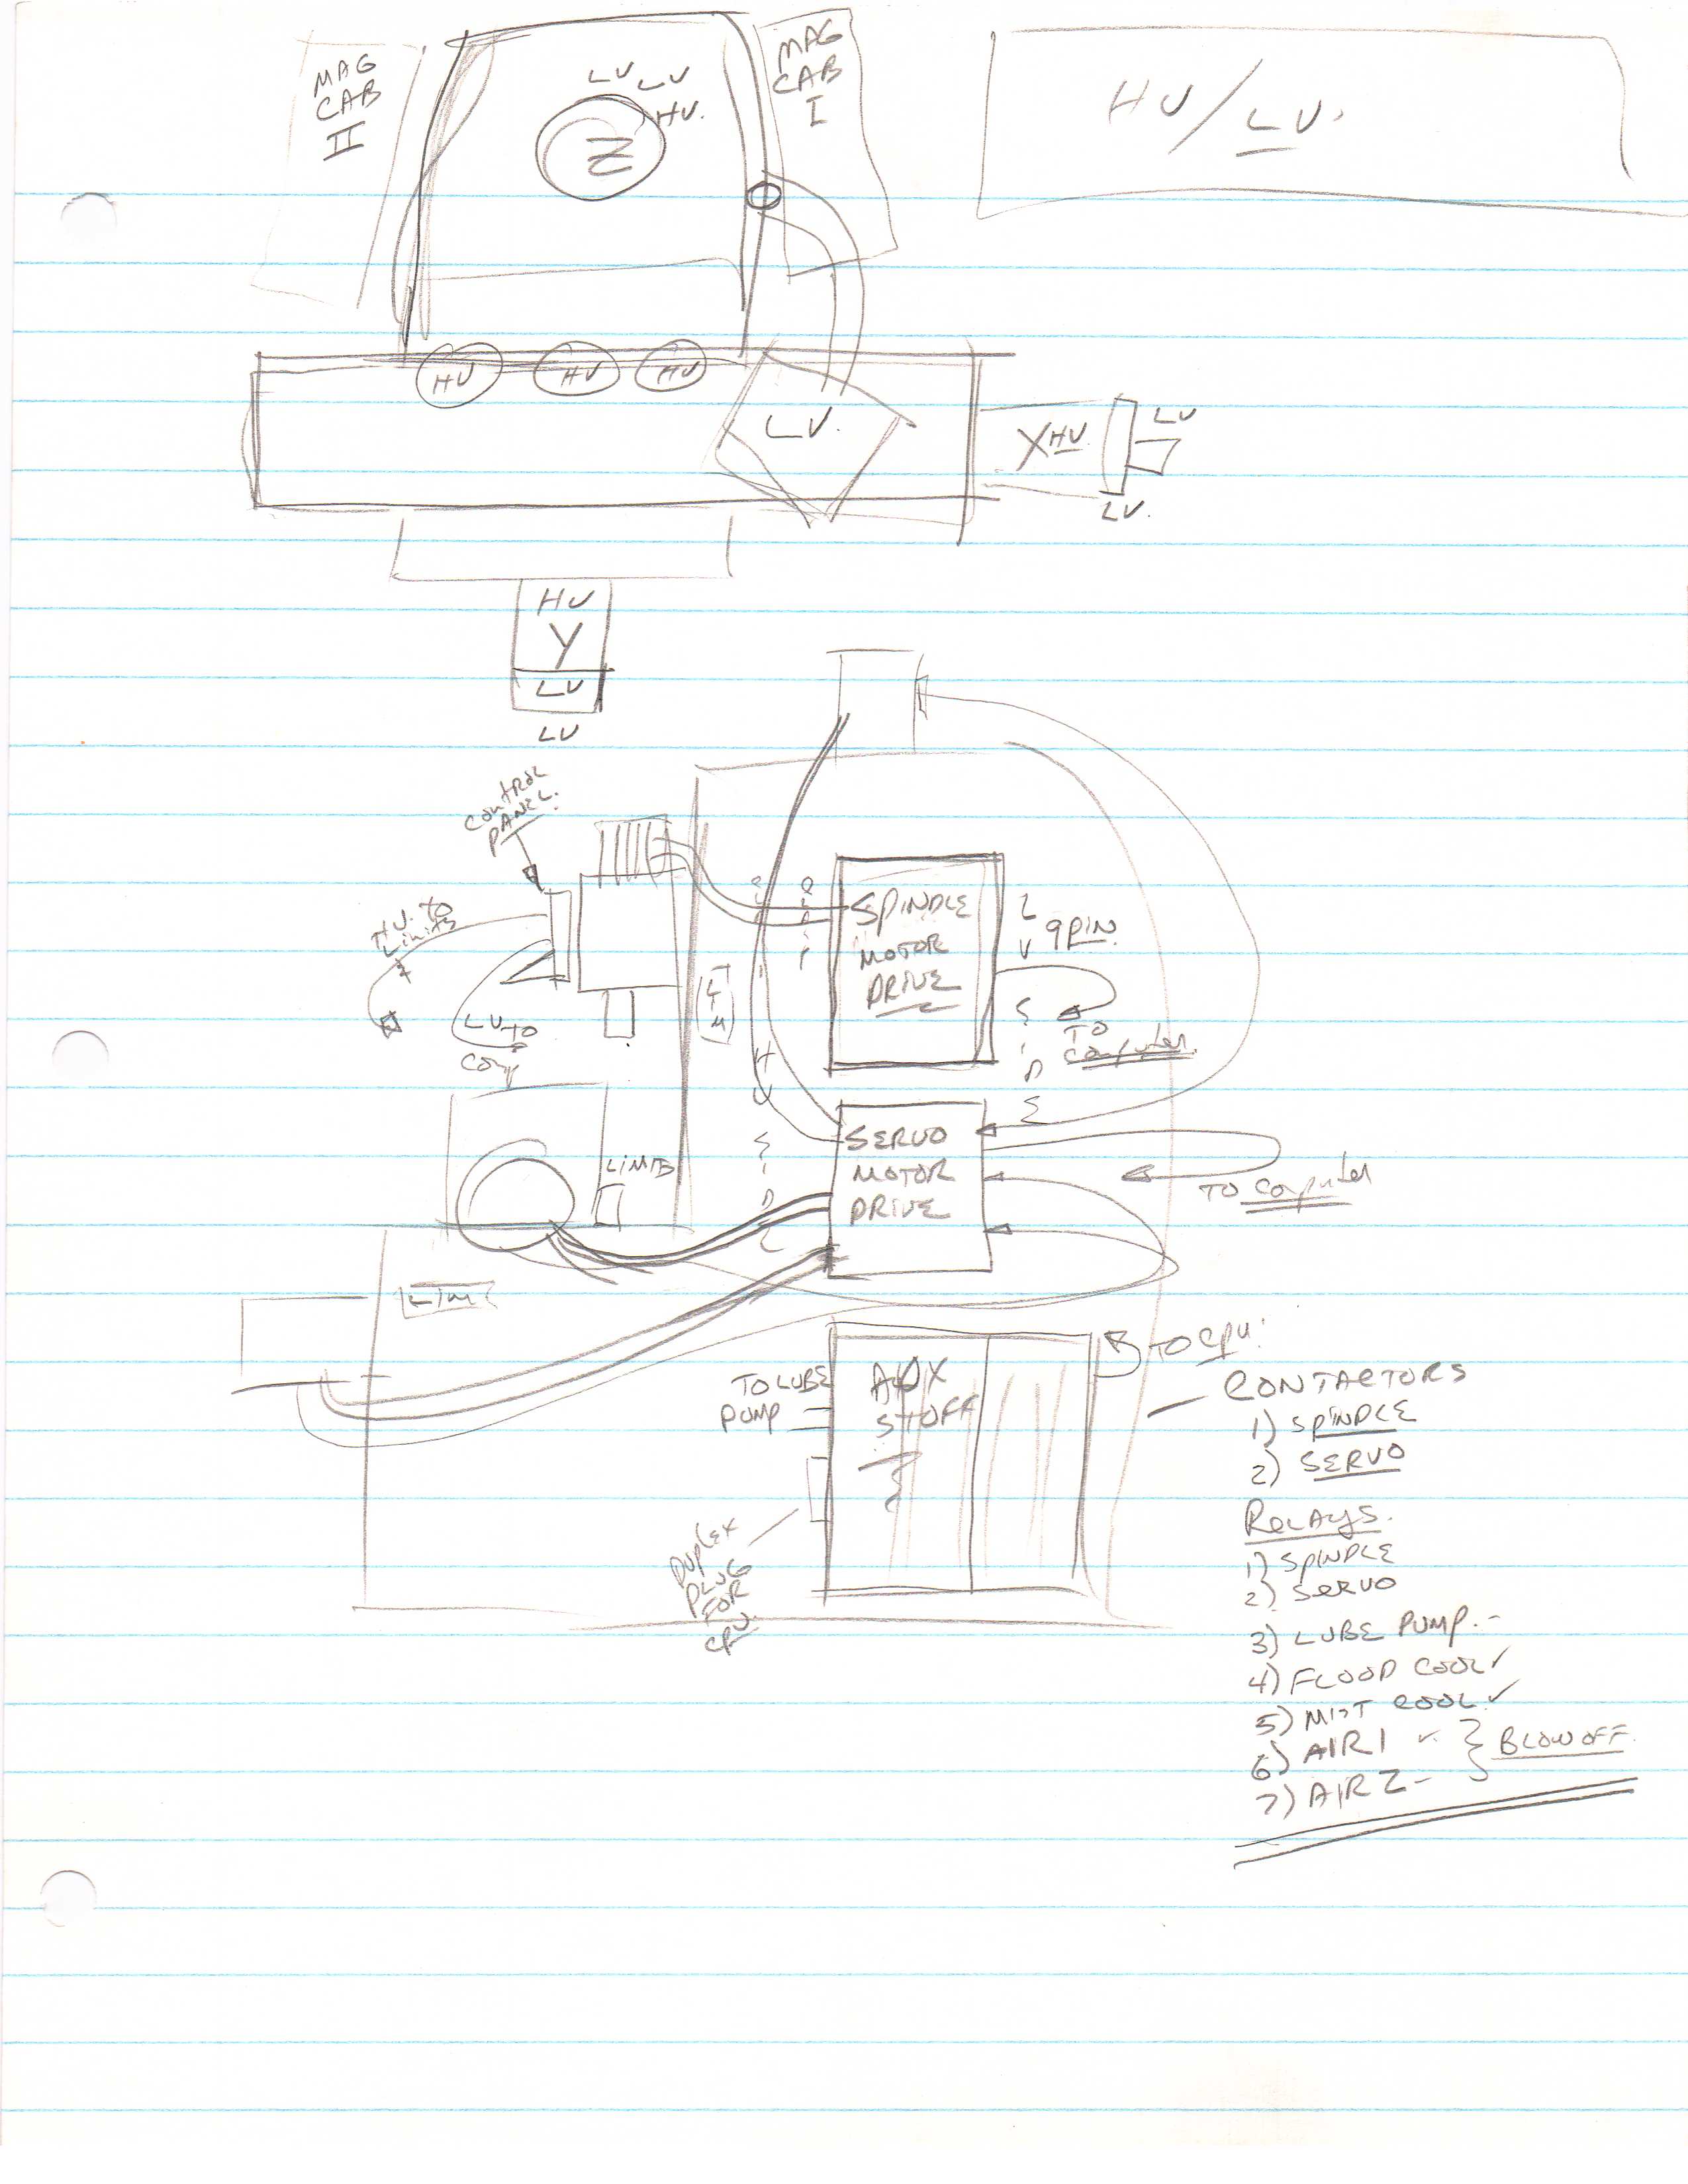 MAG
CAB
II
LV LV
HV.
Z
MAG
CAB
I
HV/LV.
HV
HV
HV
LV.
X HV.
LV
LV.
HV
Y
LV
LV
CONTROL
PANEL.
HV. TO
Limits
LV TO
Comp
SPINDLE
MOTOR
DRIVE
LV
9 PIN
SIDE
TO
Computer
LIM
HV
SIDE
SERVO
MOTOR
DRIVE
LIMITS
TO Computer
LIM
TO CPU.
TO LUBE
PUMP
AUX
STUFF
DUPLEX
PLUG
FOR
CPU.
CONTACTORS
1) SPINDLE
2) SERVO
RELAYS.
1) SPINDLE
2) SERVO
3) LUBE PUMP. -
4) FLOOD COOL ✓
5) MIST COOL ✓
6) AIR 1 ✓ } BLOW OFF.
7) AIR 2 -